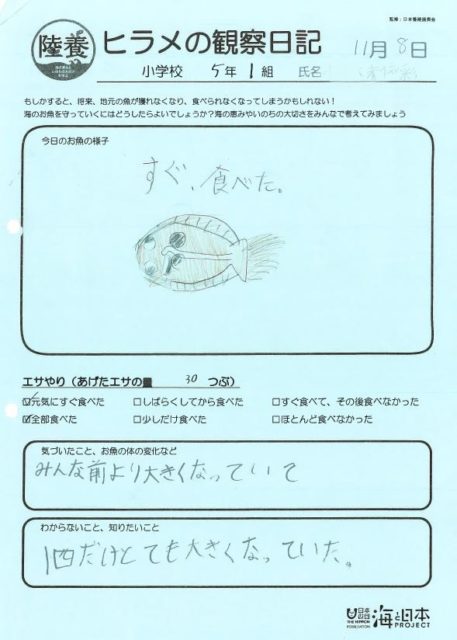 監修：日本養殖振興会
陸養
ヒラメの観察日記
11月8日
小学校 5年 1組 氏名
もしかすると、将来、地元の魚が獲れなくなり、食べられなくなってしまうかもしれない！
海のお魚を守っていくにはどうしたらよいでしょうか？海の恵みやいのちの大切さをみんなで考えてみましょう
今日のお魚の様子
すぐ、食べた。
エサやり（あげたエサの量 30 つぶ）
☑元気にすぐ食べた □しばらくしてから食べた □すぐ食べて、その後食べなかった
☑全部食べた □少しだけ食べた □ほとんど食べなかった
気づいたこと、お魚の体の変化など
みんな前より大きくなっていて
わからないこと、知りたいこと
1匹だけとても大きくなっていた。
日本財団 THE NIPPON FOUNDATION 海と日本 PROJECT